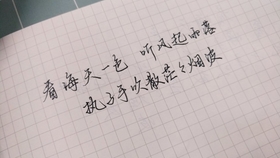 看海天一色 听风起雨落
执子手吹散苍茫烟波